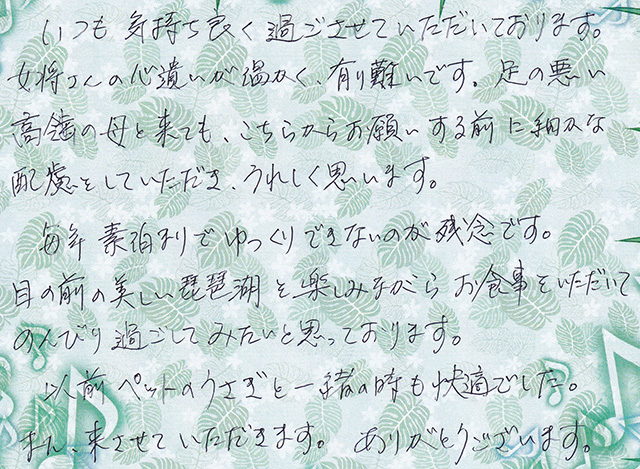 いつも気持ち良く過ごさせていただいております。
女将さんの心遣いが温かく、有り難いです。足の悪い
高齢の母と来ても、こちらからお願いする前に細かな
配慮をしていただき、うれしく思います。
毎年素泊まりでゆっくりできないのが残念です。
目の前の美しい琵琶湖を楽しみながらお食事をいただいて
のんびり過ごしてみたいと思っております。
以前ペットのうさぎと一緒の時も快適でした。
また、来させていただきます。ありがとうございます。